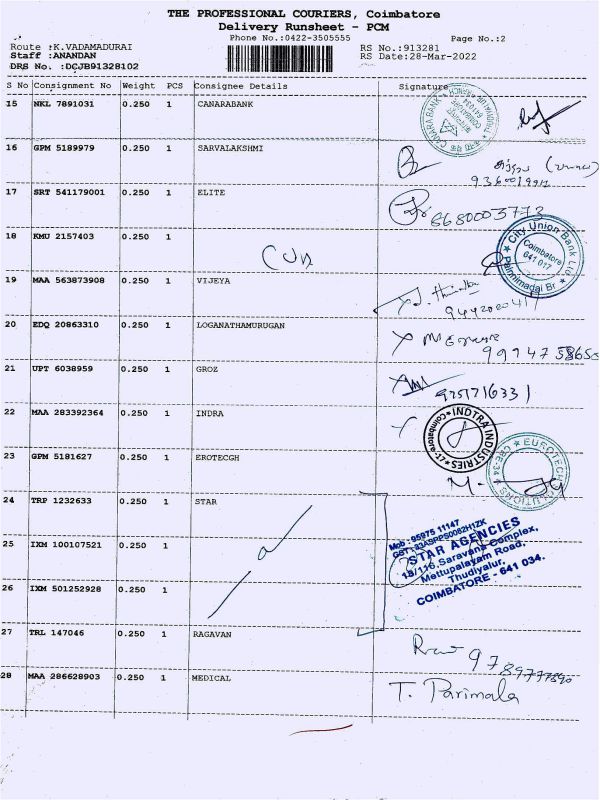 THE PROFESSIONAL COURIERS, Coimbatore
Delivery Runsheet - PCM
Phone No.:0422-3505555 Page No.:2
Route :K.VADAMADURAI RS No.:913281
Staff :ANANDAN RS Date:28-Mar-2022
DRS No. :DCJB91328102
S No Consignment No Weight PCS Consignee Details Signature
15 NKL 7891031 0.250 1 CANARABANK
CANARA BANK
16 GPM 5189979 0.250 1 SARVALAKSHMI
17 SRT 541179001 0.250 1 ELITE
8680003773
18 KMU 2157403 0.250 1 CUB
City Union Bank Ltd
Coimbatore
641 017
19 MAA 563873908 0.250 1 VIJEYA
20 EDQ 20863310 0.250 1 LOGANATHAMURUGAN
21 UPT 6038959 0.250 1 GROZ
9251716331
22 MAA 283392364 0.250 1 INDRA
INDTRA INDUSTRIES
Coimbatore-17
23 GPM 5181627 0.250 1 EROTECGH
24 TRP 1232633 0.250 1 STAR
25 IXM 100107521 0.250 1
26 IXM 501252928 0.250 1
Mob : 95975 11147
STAR AGENCIES
13/116, Saravana Complex,
Mettupalayam Road,
Thudiyalur,
COIMBATORE - 641 034.
27 TRL 147046 0.250 1 RAGAVAN
28 MAA 286628903 0.250 1 MEDICAL
T. Parimala